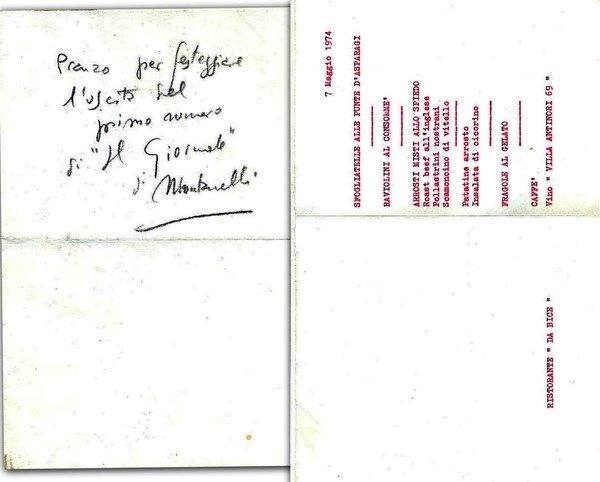 Pranzo per festeggiare
l'uscita del
primo numero
di "Il Giornale"
di Montanelli
7 Maggio 1974
SFOGLIATELLE ALLE PUNTE D'ASPARAGI
RAVIOLINI AL CONSOMME'
ARROSTI MISTI ALLO SPIEDO
Roast beef all'inglese
Pollastrini nostrani
Scamoncino di vitello
Patatine arrosto
Insalata di cicorino
FRAGOLE AL GELATO
CAFFE'
Vino " VILLA ANTINORI 69 "
RISTORANTE " DA BICE "